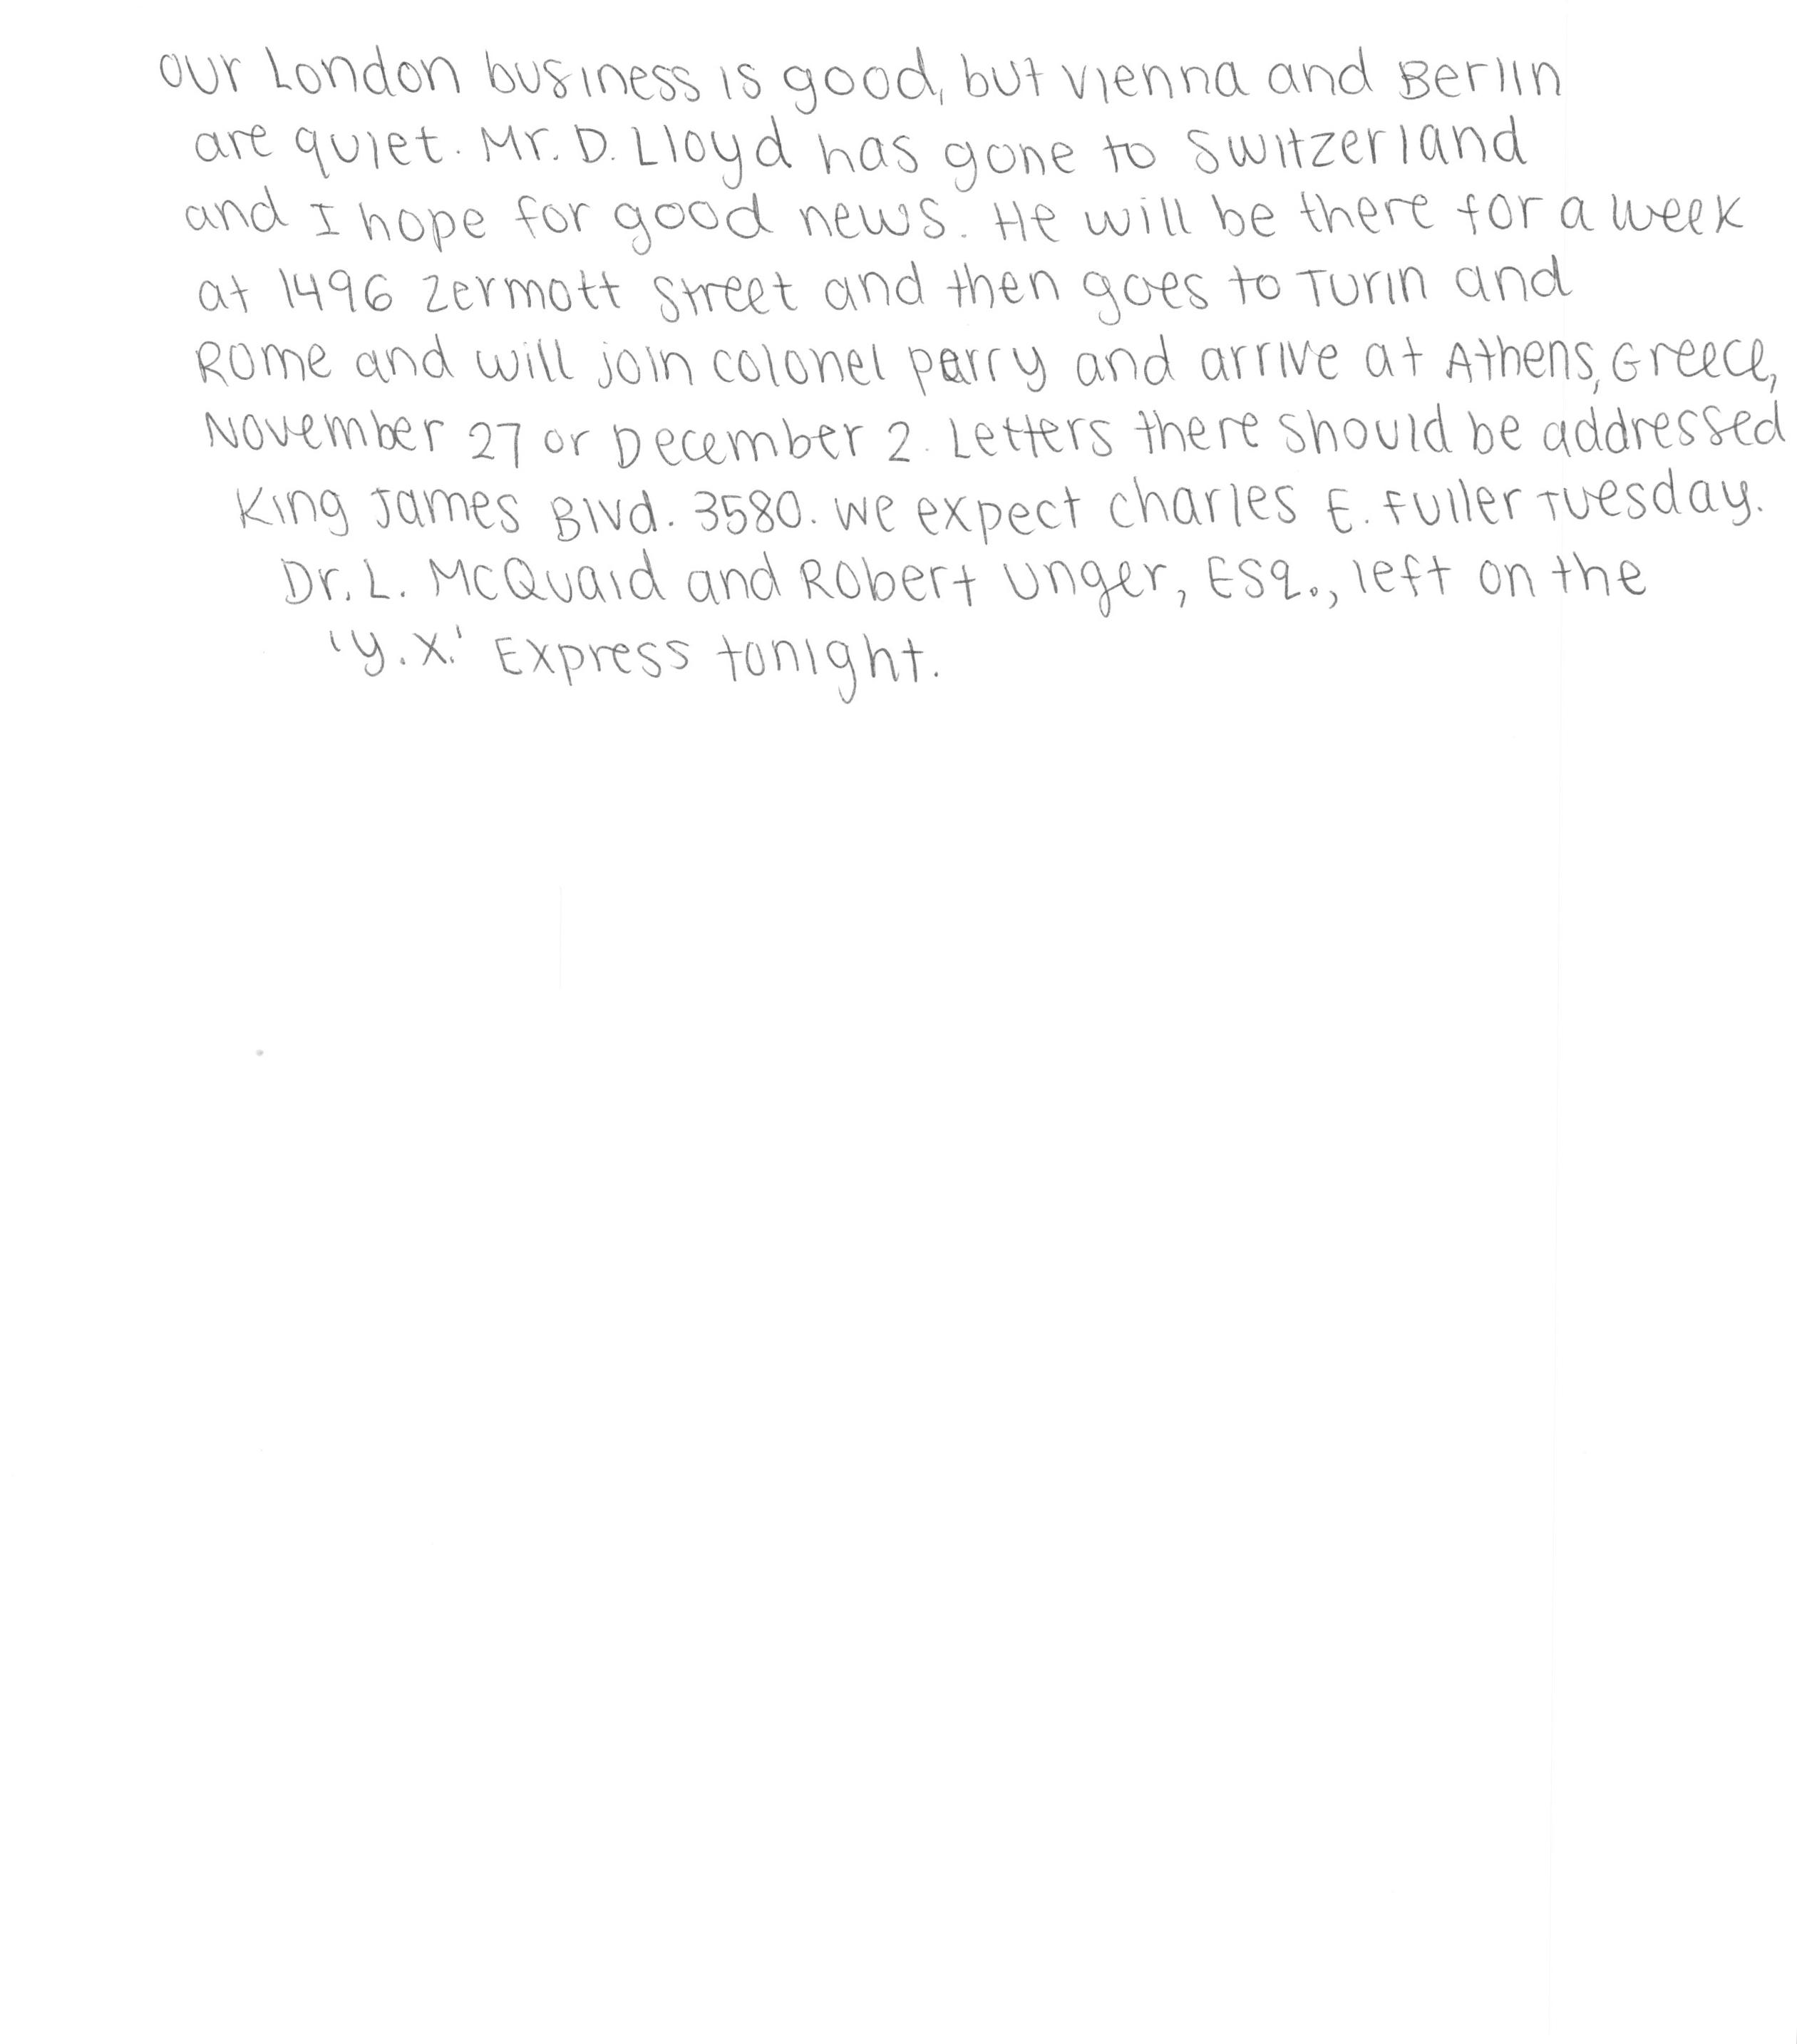 Our London business is good, but Vienna and Berlin
are quiet. Mr. D. Lloyd has gone to Switzerland
and I hope for good news. He will be there for a week
at 1496 Zermott Street and then goes to Turin and
Rome and will join Colonel Parry and arrive at Athens, Greece,
November 27 or December 2. Letters there should be addressed
King James Blvd. 3580. We expect Charles E. Fuller Tuesday.
Dr. L. McQuaid and Robert Unger, Esq., left on the
'Y.X.' Express tonight.